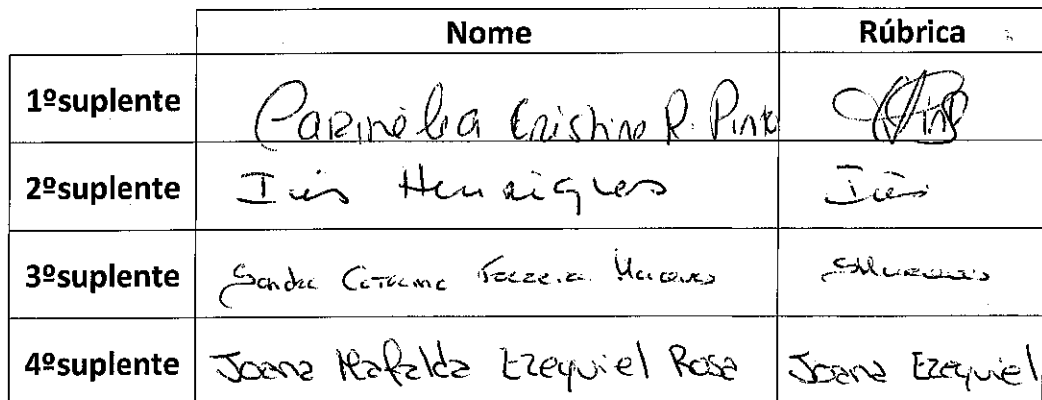 Nome Rúbrica
1ºsuplente Carinélia Cristina R. Pinto
2ºsuplente Inês Henriques Inês
3ºsuplente Sandra Catarina Ferreira Marques SMarques
4ºsuplente Joana Mafalda Ezequiel Rosa Joana Ezequiel